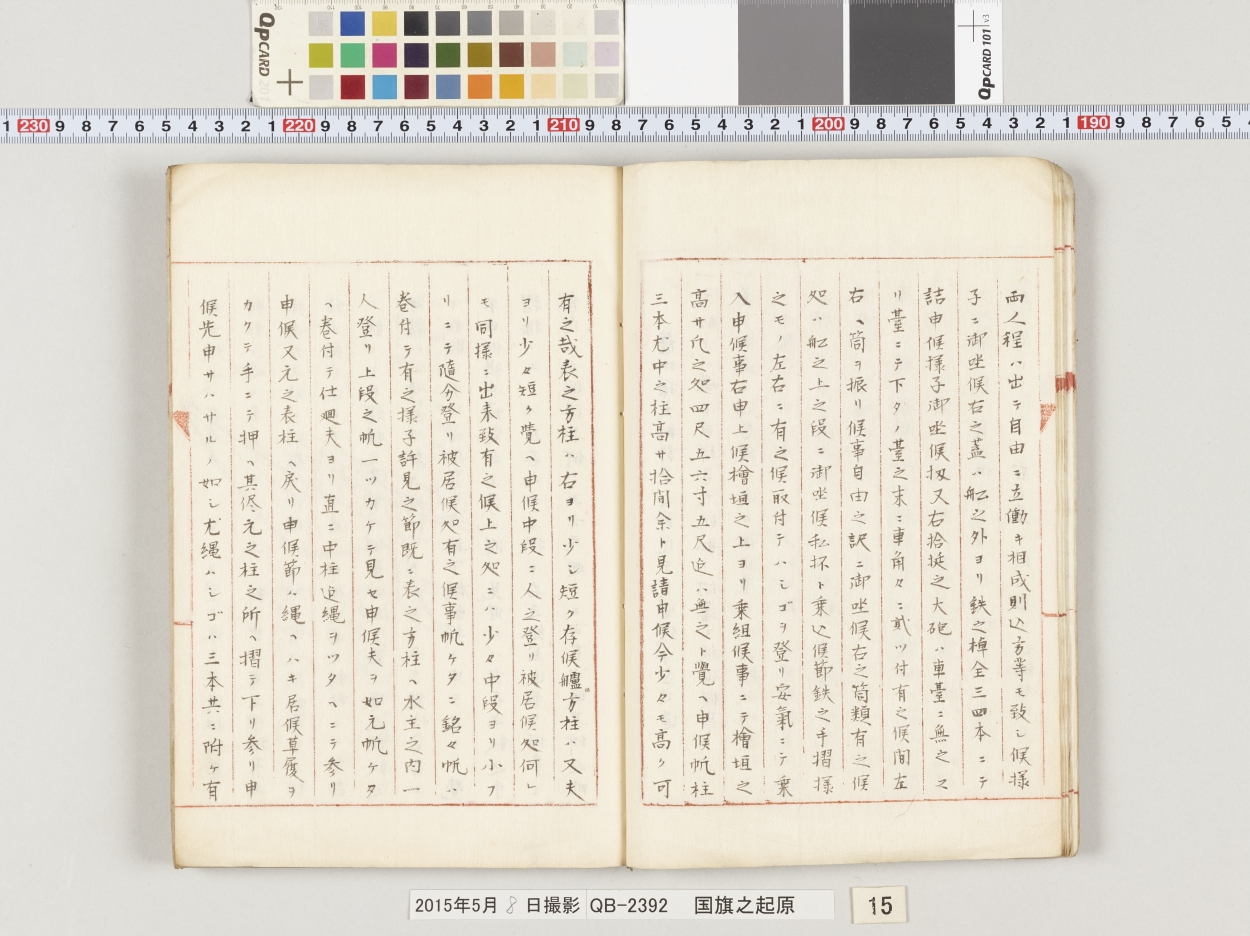 両人程ハ出テ自由ニ立働キ相成則込方等モ致シ候様
子ニ御坐候右之蓋ハ船之外ヨリ鉄之棹全三四本ニテ
詰申候様子御坐候扨又右拾挺之大砲ハ車臺ニ無之ス
リ臺ニテ下タノ臺之末ニ車角々ニ貳ツ付有之候間左
右ヘ筒ヲ振リ候事自由之訳ニ御坐候右之筒類有之候
処ハ船之上之段ニ御坐候私抔ト乗込候節鉄之手摺様
之モノ左右ニ有之候取付テハシゴヲ登リ安氣ニテ乗
入申候事右申上候檜垣之上ヨリ乗組候事ニテ檜垣之
高サ凡之処四尺五六寸五尺迄ハ無之ト覺ヘ申候帆柱
三本尤中之柱高サ拾間余ト見請申候今少々モ高ク可
有之哉表之方柱ハ右ヨリ少シ短ク存候艫方柱ハ又夫
ヨリ少々短ク覺ヘ申候中段ニ人之登リ被居候処何レ
モ同様ニ出来致有之候上之処ニハ少々中段ヨリ小フ
リニテ随分登リ被居候処有之候事帆ケタニ銘々帆ハ
巻付テ有之様子許見之節既ニ表之方柱ヘ水主之内一
人登リ上段之帆一ツカケテ見セ申候夫ヲ如元帆ケタ
ヘ巻付テ仕廻夫ヨリ直ニ中柱迄縄ヲツタヘニテ参リ
申候又元之表柱ヘ戻リ申候節ハ縄ヘハキ居候草履ヲ
カクテ手ニテ押ヘ其侭元之柱之所ヘ摺テ下リ参リ申
候先申サハサルノ如シ尤縄ハシゴハ三本共ニ附ケ有
2015年5月8日撮影 QB-2392 国旗之起原
15
QPCARD 201
QPCARD 101 v3
1 230 9 8 7 6 5 4 3 2 1 220 9 8 7 6 5 4 3 2 1 210 9 8 7 6 5 4 3 2 1 200 9 8 7 6 5 4 3 2 1 190 9 8 7 6 5